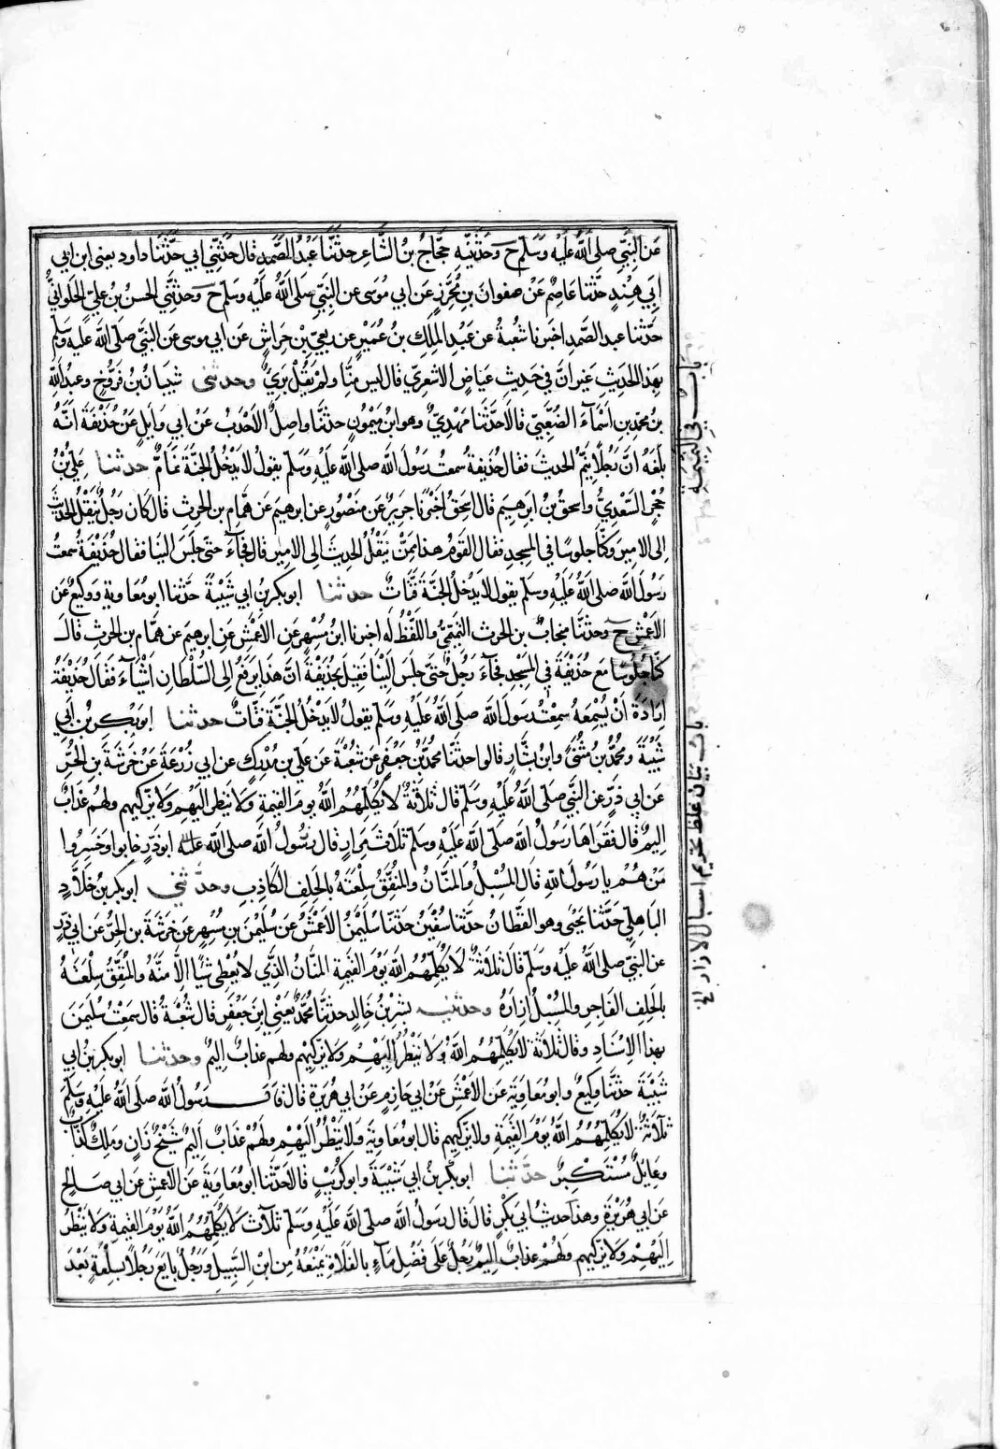 عَن النَّبِيِّ صلى اللَّهُ عَلَيْهِ وَسَلَّمَ ح وَحَدَّثَنِيهِ حَجَّاجُ بْنُ الشَّاعِرِ حَدَّثَنَا عَبْدُ الصَّمَدِ قَالَ حَدَّثَنِي أبي حَدَّثَنَا داود يعني ابن ابي
أَبِي هِنْدٍ حَدَّثَنَا عَاصِمٌ عَنْ صَفوانَ بْنِ مُحْرِزٍ عَن ابي مُوسَى عن النَّبِيِّ صَلَّى اللَّهُ عَلَيْهِ وَسَلَّمَ ح وحَدَّثَنِي الحسن بن عَلِيٍّ الحُلْوَانِيُّ
حَدَّثَنَا عبد الصَّمَدِ اخبرنا شُعْبَةُ عن عَبْدِ المَلِكِ بن عُمَيْرٍ عن ربعي بن حِرَاشٍ عن ابي موسى عن النَّبِيِّ صَلَّى اللَّه عَلَيْهِ وَسَلَّمَ
بِهَذَا الحَدِيثِ غَيْرَ انَّ فِي حَدِيثِ عِيَاضٍ الأشعَرِيِّ قَالَ ليس مِنَّا وَلَمْ يَقُلْ بَرِيءٌ وحدثني شَيْبَانُ بْنُ فَرُّوخَ وعبدُ اللَّهِ
بن محمد بن أَسْمَآءَ الضُّبَعِيُّ قَالَا حَدَّثَنَا مَهْدِيٌّ وهو ابنُ مَيْمُونٍ حدثَنَا واصِلٌ الأَحْدَبُ عَنْ ابي وَايلٍ عَنْ حُذَيْفَةَ انَّهُ
بَلَغَهُ انَّ رَجُلًا يَنِمُّ الحديثَ فقال حُذيفةُ سمعتُ رَسُولَ اللَّه صلى اللَّه عَلَيْهِ وَسَلَّمَ يقولُ لَا يَدْخُلُ الجَنَّةَ نَمَّامٌ حدثنا عَلِيُّ بْنُ
حُجْرٍ السَّعْدِيُّ وإسحقُ بْنُ ابرهيم قَالَ اسحقُ أَخْبَرَنَا جَرِيرٌ عَنْ مَنْصُورٍ عن ابرهيمَ عَنْ هَمَّامِ بن الحرث قَالَ كَانَ رَجُلٌ يَنْقُلُ الحَدِيثَ
إلى الامِيرِ وكُنَّا جلوسًا فِي المسجد فقال القَوْمُ هذا مِمَّنْ يَنْقُلُ الحديثَ إلى الامير قَالَ فَجَاءَ حتى جَلَسَ إِلَيْنَا فقال حُذَيْفَةُ سمعتُ
رَسُولَ اللَّه صلى اللَّهُ عَلَيْهِ وسلم يقولُ لَا يَدخُلُ الجَنَّةَ قَتَّاتٌ حدثنا ابو بكر بن ابي شَيْبَةَ حَدَّثنَا ابو مُعَاوِيةَ وَوكيعٌ عن
الأعمش ح وحَدَّثَنَا مِنجابُ بن الحرث التَّمِيمِيُّ واللَّفْظُ لَهُ اخبرنا ابنُ مُسْهِرٍ عَن الأعْمَشِ عَن ابرهيم عن همَّام بن الحرث قال
كُنَّا جُلُوسًا مَعَ حُذَيْفَةَ فِي المَسْجِدِ فَجَآءَ رَجُلٌ حَتَّى جَلَسَ إِلَيْنَا فقيل لحُذيْفَةَ انَّ هَذَا يرفَعُ إلى السُّلْطَانِ أَشْيَآءَ فَقَالَ حُذَيْفَةُ
إِرَادَةَ أَنْ يُسْمِعَهُ سمِعْتُ رسولَ اللَّه صلى اللَّه عَلَيْهِ وَسَلَّمَ يقولُ لَا يَدْخُلُ الجَنَّةَ قَتَّاتٌ حدثنا ابو بكر بن أبي
شَيْبَةَ ومُحَمَّدُ بن مُثَنًّى وابنُ بَشَّارٍ قَالوا حدَّثَنَا مُحَمَّدُ بْنُ جَعْفَرٍ عَنْ شُعْبَةَ عَنْ عَلِيِّ بن مُدْرِكٍ عن ابي زُرْعَةَ عَنْ خَرَشَةَ بْنِ الْحُرِّ
عَن ابي ذَرٍّ عَنِ النَّبِيِّ صلى اللَّهُ عَلَيْهِ وَسَلَّمَ قَال ثَلاثَةٌ لَا يُكَلِّمُهُمُ اللَّهُ يومَ القِيَمَةِ وَلَا يَنظرُ إِلَيْهِمْ وَلا يُزَكِّيهم ولهم عَذَابٌ
الِيمٌ قَالَ فقرَأهَا رَسُولُ اللَّه صلَّى اللَّه عَلَيْهِ وَسَلَّم ثَلَاثَ مِرَارٍ قَال رَسُولُ اللَّه صلى اللَّه عليه ابو ذَرٍّ خَابُوا وَخَسِرُوا
مَنْ هُمْ يا رَسُولَ اللَّهِ قَالَ المُسْبِلُ وَالمَنَّانُ وَالمُنَفِّقُ سِلْعَتَهُ بِالحَلِفِ الكَاذِبِ وحدَّثني ابو بكر بن خَلَّادٍ
البَاهِلِيُّ حَدَّثَنَا يَحْيَى وهو القَطَّانُ حَدَّثَنَا سُفْيَنُ حَدَّثَنَا سُلَيْمَنُ الأعْمَشُ عَنْ سُلَيْمَنَ بن مُسْهِرٍ عن خَرَشَةَ بن الحُرِّ عَن ابي ذَرٍّ
عَنِ النَّبِيِّ صلَّى اللَّهُ عَلَيْهِ وَسَلَّمَ قَالَ ثلَاثَةٌ لَا يُكَلِّمُهُمُ اللَّه يَوْمَ القِيَمَةِ المنَّانُ الذِي لَا يُعْطِي شَيْئًا إلَّا مَنَّهُ والمُنَفِّقُ سِلْعَتَهُ
بالحَلِفِ الفَاجِرِ والمُسْبِلُ إِزَارَهُ وحدثنيه بشرُ بْنُ خَالِدٍ حدثنَا مُحَمَّدٌ يَعْنِي ابنَ جَعْفَرٍ عن شُعْبَةَ قَالَ سَمِعْتُ سُلَيْمَنَ
بهذا الإسْنَادِ وقَالَ ثَلَاثَةٌ لَا يُكَلِّمُهُمُ اللَّهُ وَلَا يَنْظُرُ إِلَيْهِمْ وَلَا يُزَكِّيهِمْ ولهم عَذَابٌ الِيمٌ وحدثنا ابو بكر بن ابي
شَيْبَةَ حدثَنَا وكيعٌ وابو مُعَاوِيَةَ عَن الأعْمَشِ عَنْ ابي حَازِمٍ عَنْ ابي هُرَيْرَةَ قَالَ قَالَ رَسُولُ اللَّه صلى اللَّهُ عَلَيْهِ وَسَلَّمَ
ثَلَاثَةٌ لَا يُكَلِّمُهُمُ اللَّهُ يَوْمَ القِيَمَةِ ولا يُزَكِّيهِم قَالَ ابو مُعَاوِيَةَ ولا يَنْظُرُ إلَيْهِمْ وَلَهُمْ عَذَابٌ أَلِيمٌ شَيْخٌ زَانٍ وَمَلِكٌ كَذَّابٌ
وعَايلٌ مُسْتَكْبِرٌ حدَّثنا ابو بكر بن ابي شَيْبَةَ وابو كُرَيْبٍ قَالَا حَدَّثَنَا ابو مُعَاوِيَةَ عَن الاعمش عن ابي صَالِحٍ
عَن ابي هُرَيْرَةَ وهذا حديثُ ابي بَكْرٍ قَالَ قَالَ رَسُولُ اللَّه صلى اللَّه عَلَيْهِ وَسَلَّمَ ثَلاثٌ لَا يُكَلِّمُهُمُ اللَّهُ يَوْمَ القِيَمةِ وَلَا يَنْظُرُ
إِلَيْهِمْ وَلَا يُزَكِّيهِم وَلَهُمْ عَذَابٌ الِيمٌ رَجُلٌ عَلَى فَضْلِ مَآءٍ بِالفَلَاةِ يَمْنَعُهُ مِنَ ابْنِ السَّبِيلِ وَرَجُلٌ بَايَعَ رَجُلًا بِسِلْعَةٍ بَعْدَ
بَابٌ فِي النَّمِيمَةِ
باب بيان غلظ تحريم اسبال الازار